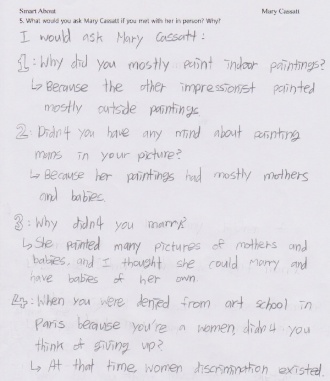 Smart About
Mary Cassatt
5. What would you ask Mary Cassatt if you met with her in person? Why?
I would ask Mary Cassatt:
1: Why did you mostly paint indoor paintings?
↳ Because the other impressionist painted
mostly outside paintings.
2: Didn4 you have any mind about painting
mans in your picture?
↳ Because her paintings had mostly mothers
and babies.
3: Why didn4 you marry?
↳ She painted many pictures of mothers and
babies, and I thought she could marry and
have babies of her own.
4: When you were denied from art school in
Paris because you're a women, didn4 you
think of giving up?
↳ At that time women discrimination existed.